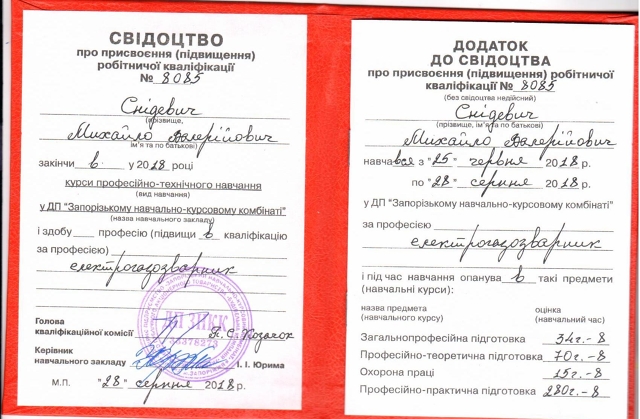 СВІДОЦТВО
про присвоєння (підвищення)
робітничої кваліфікації
№ 8085
Снідевич
(прізвище,
Михайло Валерійович
ім'я та по батькові)
закінчив у 2018 році
курси професійно-технічного навчання
(вид навчання)
у ДП "Запорізькому навчально-курсовому комбінаті"
(назва навчального закладу)
і здобу___ професію (підвищив кваліфікацію
за професією)
електрогазозварник
Голова
кваліфікаційної комісії
Керівник
навчального закладу І. І. Юрима
М.П. "28" серпня 2018 р.
ДОДАТОК
ДО СВІДОЦТВА
про присвоєння (підвищення) робітничої
кваліфікації № 8085
(без свідоцтва недійсний)
Снідевич
(прізвище, ім'я та по батькові)
Михайло Валерійович
навчався з "25" червня 2018 р.
по "28" серпня 2018 р.
у ДП "Запорізькому навчально-курсовому комбінаті"
за професією
електрогазозварник
і під час навчання опанував такі предмети
(навчальні курси):
назва предмета оцінка
(навчального курсу) (навчальний час)
Загальнопрофесійна підготовка 34г.-8
Професійно-теоретична підготовка 70г.-8
Охорона праці 15г.-8
Професійно-практична підготовка 280г.-8